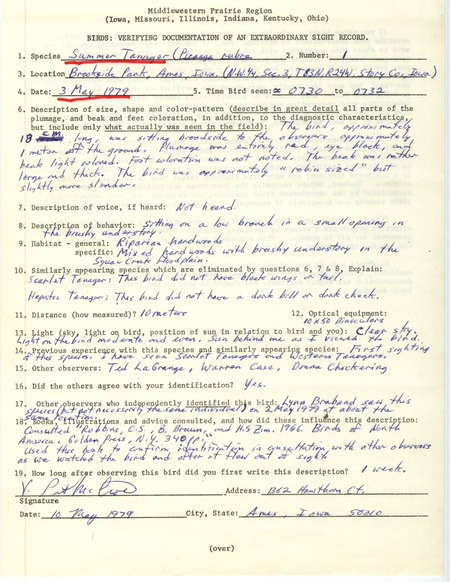 Middlewestern Prairie Region
(Iowa, Missouri, Illinois, Indiana, Kentucky, Ohio)
BIRDS: VERIFYING DOCUMENTATION OF AN EXTRAORDINARY SIGHT RECORD.
1. Species Summer Tanager (Piranga rubra 2. Number: 1
3. Location Brookside Park, Ames, Iowa. (NW¼, Sec. 3, T83N, R24W, Story Co., Iowa)
4. Date: 3 May 1979 5. Time Bird seen: ≈ 0730 to 0732
6. Description of size, shape and color-pattern (describe in great detail all parts of the
plumage, and beak and feet coloration, in addition, to the diagnostic characteristics,
but include only what actually was seen in the field): The bird, approximately
18 cm long, was sitting broadside to the observers approximately
1 meter off the ground. Plumage was entirely red, eye black, and
beak light colored. Foot coloration was not noted. The beak was rather
large and thick. The bird was approximately "robin sized" but
slightly more slender.
7. Description of voice, if heard: Not heard.
8. Description of behavior: Sitting on a low branch in a small opening in
the brushy understory.
9. Habitat - general: Riparian hardwoods
specific: Mixed hardwoods with brushy understory in the
Squaw Creek floodplain.
10. Similarly appearing species which are eliminated by questions 6, 7 & 8, Explain:
Scarlet Tanager: This bird did not have black wings or tail.
Hepatic Tanager: This bird did not have a dark bill or dark cheek.
11. Distance (how measured)? 10 meters 12. Optical equipment:
10x50 Binoculars
13. Light (sky, light on bird, position of sun in relation to bird and you): Clear sky.
Light on the bird moderate and even. Sun behind me as I viewed the bird.
14. Previous experience with this species and similarly appearing species: First sighting
of this species. I have seen Scarlet Tanagers and Western Tanagers.
15. Other observers: Ted LaGrange, Warren Case, Donna Chickering
16. Did the others agree with your identification? Yes.
17. Other observers who independently identified this bird: Lynn Brabend saw this
species (but not necessarily the same individual) on 2 May 1979 at about the
same location.
18. Books, illustrations and advice consulted, and how did these influence this description:
Consulted "Robbins, C.S., B. Bruun, and H.S. Zim. 1966. Birds of North
America. Golden Press, N.Y. 340 pp."
Used this book to confirm identification in consultation with other observers
as we watched the bird and after it flew out of sight
19. How long after observing this bird did you first write this description? 1 week.
Address: 1362 Hawthorn Ct.
Signature
Date: 10 May 1979 City, State: Ames, Iowa 50010
(over)